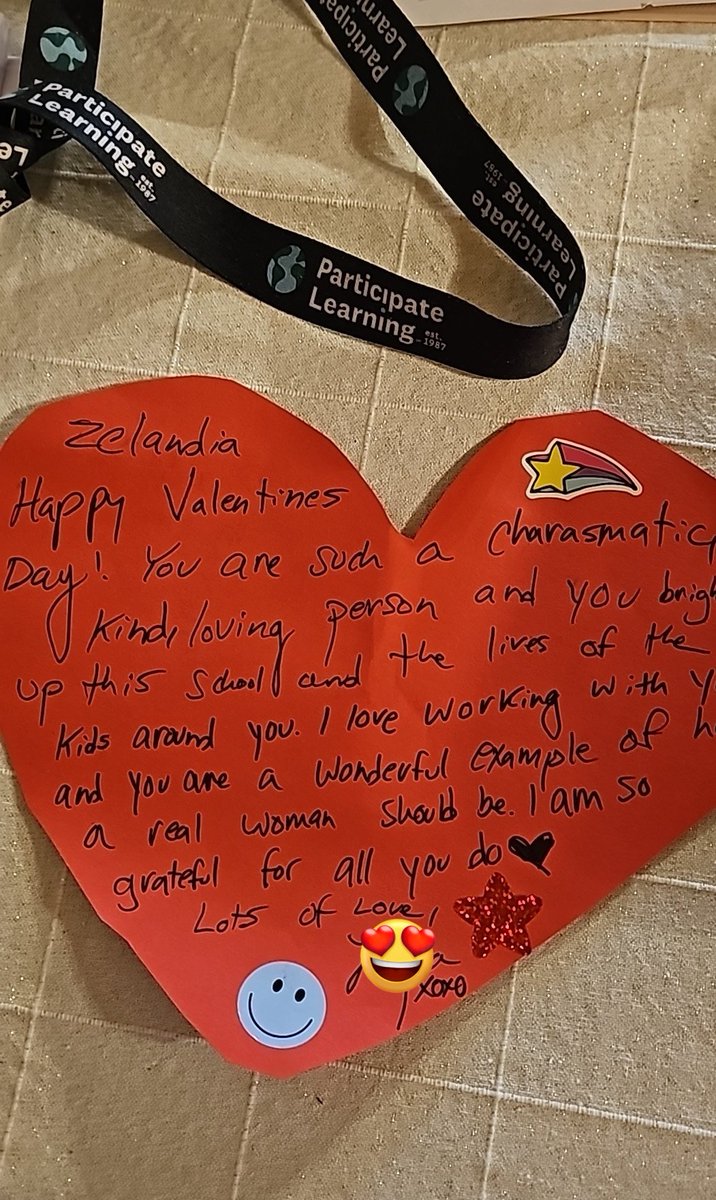 Participate
Learning
Participate
Learning
est.
1987
Participate
Learning
est.
1987
Participate
Learning
est.
1987
Zelandia
Happy Valentines
Day! You are such a charasmatic,
kind, loving person and you brigh
up this school and the lives of the
kids around you. I love working with y
and you are a wonderful example of h
a real woman should be. I am so
grateful for all you do
Lots of Love,
xoxo